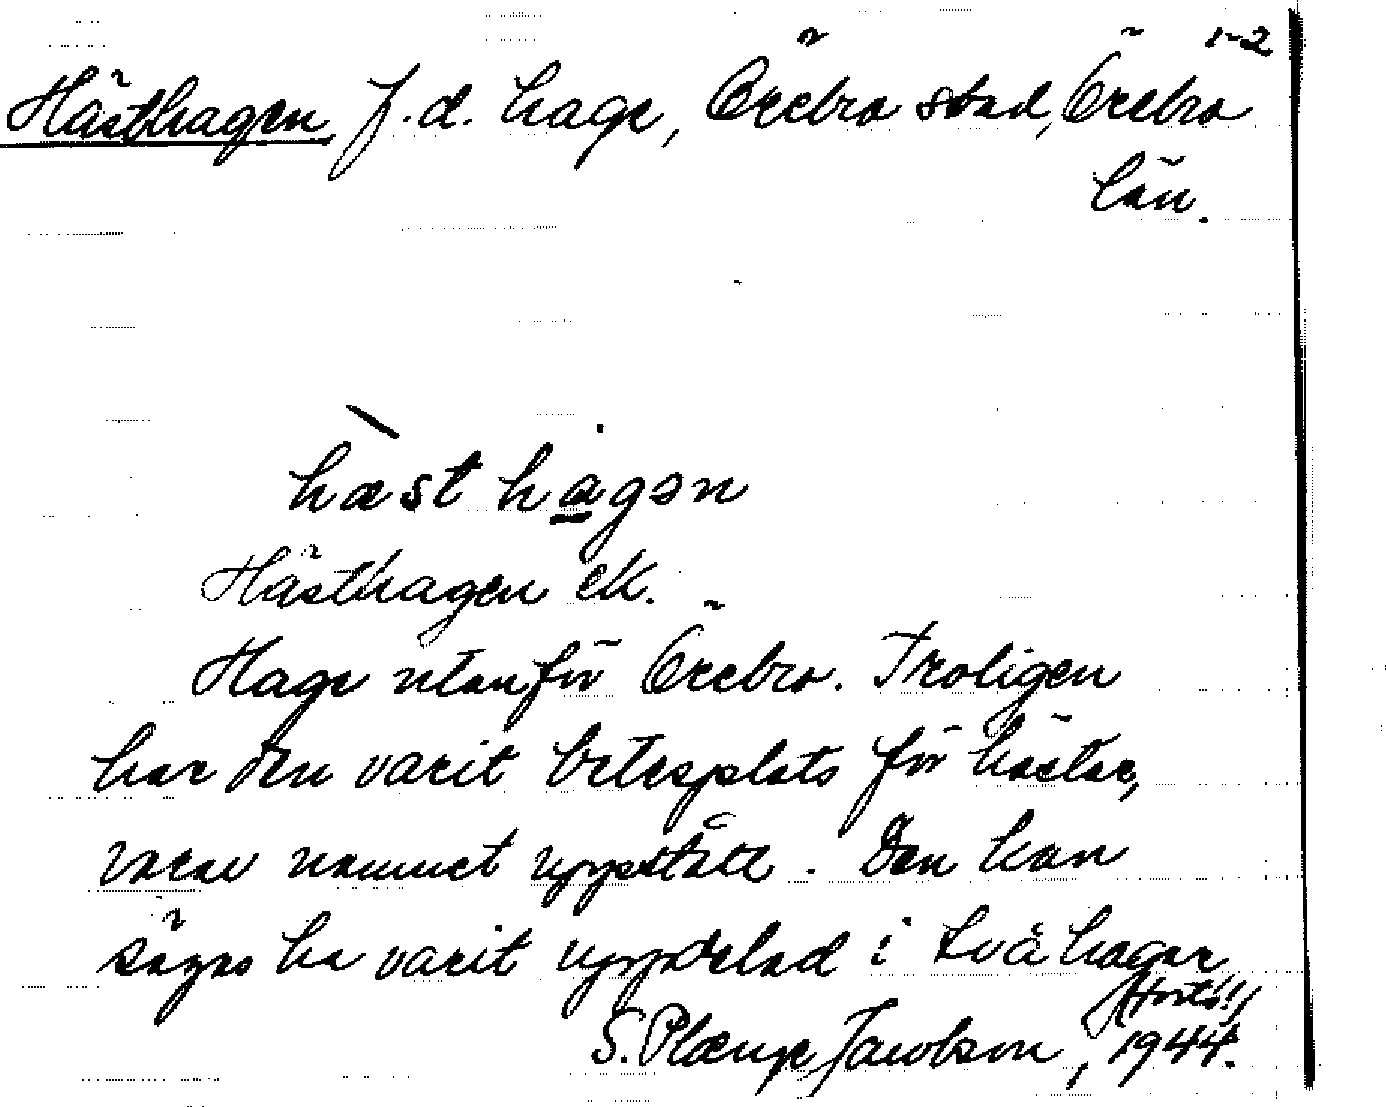 1-2
Hästhagen, f.d. hage, Örebro stad, Örebro
län.
hæst hagən
Hästhagen ek.
Hage utanför Örebro. Troligen
har den varit betesplats för hästar,
varav namnet uppstått. Den kan
sägas ha varit uppdelad i två hagar
(Forts!!)
S. Plænge Jacobson, 1944.